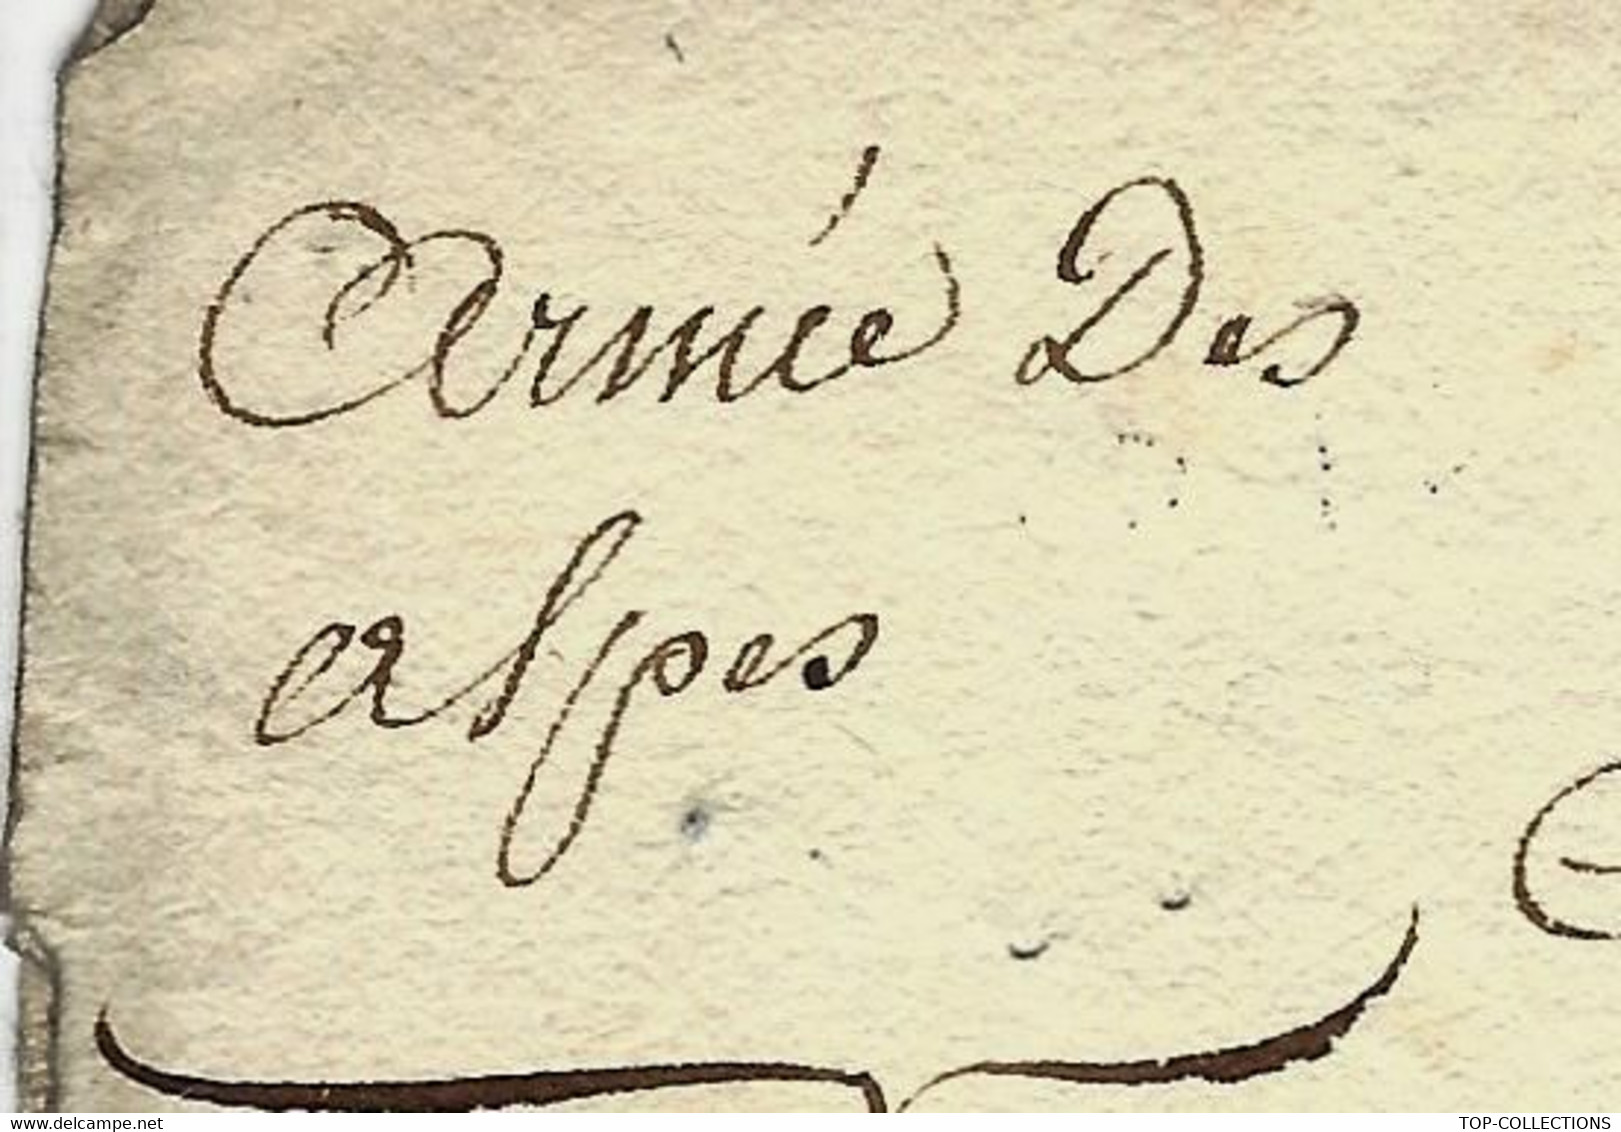 Armée Des
alpes
www.delcampe.net
TOP-COLLECTIONS